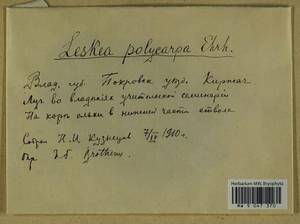 Leskea polycarpa Ehrh.
Влад. губ. Покровск. уезд. Киржач
Луг во владениях учительской семинарии
На коре ольхи в нижней части ствола
Собрал Н.И. Кузнецов 7/IV 1910 г.
Опр. Brotherus
Herbarium MW, Bryophyta
MW 9 047 370